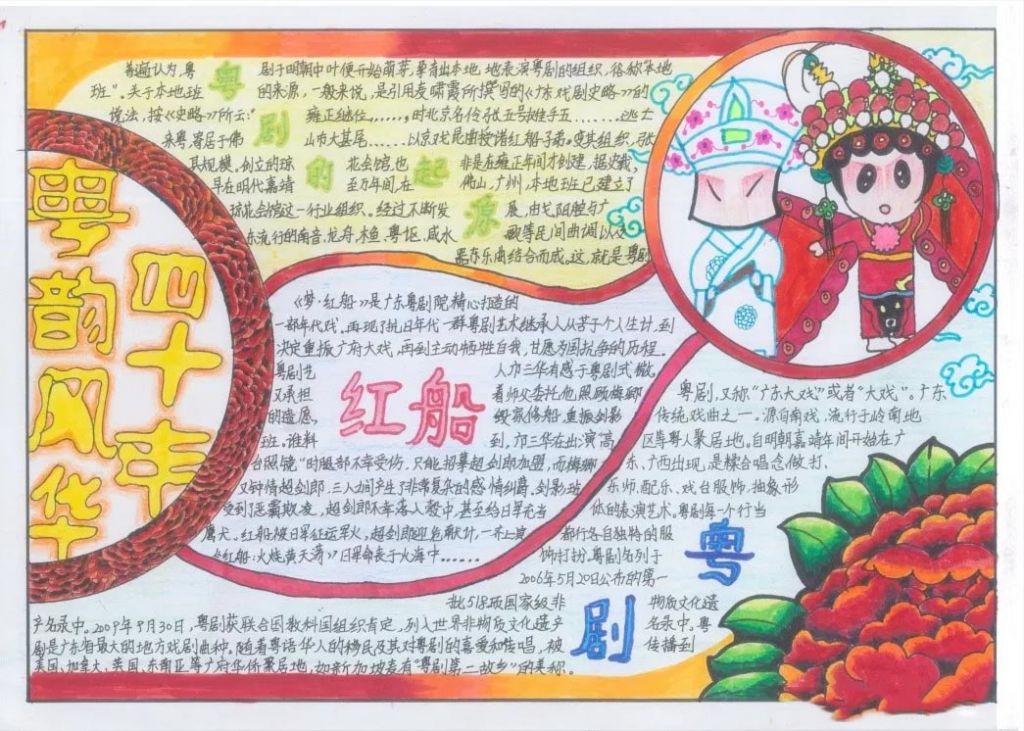 四十年
粤韵风华
粤剧的起源
普遍认为,粤剧于明朝中叶便开始萌芽,
地表演粤剧的组织,俗称"本地
班"。关于本地班的来源,一般来说,是引用麦啸霞所撰写的《广东戏剧史略》的
说法,按《史略》所云:"雍正继位……,时北京名伶张五号摊手五……逃亡
来粤,寓居于佛山市大基尾……以京戏昆曲授诸红船子弟。变其组织,张
其规模。创立的琼花会馆,也非是在雍正年间才创建,据记载,
早在明代嘉靖至万年间,在佛山,广州,本地班已建立了
琼花会馆这一行业组织。经过不断发展,由弋阳腔与广
东流行的南音,龙舟,木鱼,粤讴,咸水歌等民间曲调以及
器乐曲结合而成。这就是粤剧
红船
《梦·红船》是广东粤剧院精心打造的
一部年代戏。再现了抗日年代一群粤剧艺术继承人从苦于个人生计,到
决定重振广府大戏,再到主动牺牲自我,甘愿为国抗争的历程。
粤剧艺人邝三华有感于粤剧式微,
又承担着师父委托他照顾梅卿
的遗愿,毁家修船,重振剑影
班。谁料到,邝三华在出演高
台照镜"时腿部不幸受伤,只能招募超剑郎加盟,而梅卿
又钟情超剑郎,三人间产生了非常复杂的感情纠葛,剑影班
受到恶霸欺凌,超剑郎不幸落入彀中,甚至给日军充当
鹰犬。红船被日军征运军火,超剑郎迎危献计,一齐上演
《红船·火烧黄天荡》日军命丧于火海中……
粤剧
粤剧,又称"广东大戏"或者"大戏"。广东
传统戏曲之一。源自南戏,流行于岭南地
区等粤人聚居地。自明朝嘉靖年间开始在广
东、广西出现,是糅合唱念做打,
乐师,配乐、戏台服饰、抽象形
体的表演艺术。粤剧每个行当
都行各自独特的服
饰打扮。粤剧名列于
2006年5月20日公布的第一
批518项国家级非物质文化遗
产名录中。2009年9月30日,粤剧获联合国教科国组织肯定,列入世界非物质文化遗产名录中。粤
剧是广东省最大的地方戏剧曲种。随着粤语华人的移民及其对粤剧的喜爱和传唱,被传播到
美国、加拿大、英国、东南亚等广府华侨聚居地,如新加坡素有"粤剧第二故乡"的美称。